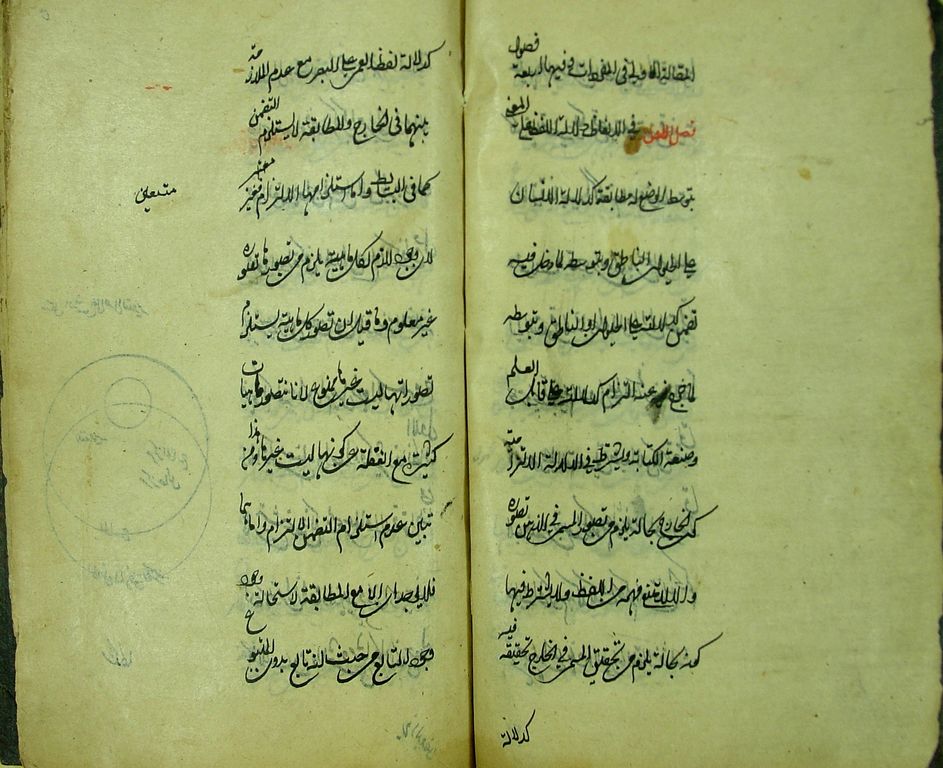 المقالة الاولى فى المفردات وفيها اربعة فصول
فصل الاول فى الالفاظ دلالة اللفظ على المعنى
بتوسط الوضع له مطابقة كدلالة الانسان
على الحيوان الناطق وبتوسطه لما دخل فيه
تضمن كدلالته على الحيوان او الناطق وبتوسطه
لما خرج عنه التزام كدلالته على قابل العلم
وصنعة الكتابة ويشترط فى الدلالة الالتزامية
كون الخارج بحالة يلزم من تصور المسمى فى الذهن تصوره
والا لامتنع فهمه من اللفظ ولا يشترط فيها
كونه بحالة يلزم من تحقيق المسمى فى الخارج تحقيقه فيه
كدلالة
كدلالة لفظ العمى على البصر مع عدم الملازمة
بينهما فى الخارج والمطابقة لا يستلزم التضمن
كما فى البسائط واما استلزامها الالتزام فغير
لان وجود لازم لكل ماهية يلزم من تصورها تصوره
غير معلوم وما قيل ان تصور كل ماهية يستلزم
تصور انها ليست غيرها ممنوع لانا نتصور ماهيات
كثيرة مع الغفلة عن كونها ليست غيرها ومن هذا
تبين عدم استلزام التضمن الالتزام واما هما
فلا يوجدان الا مع المطابقة لاستحالة وجود
وجود التابع من حيث انه تابع بدون المتبوع